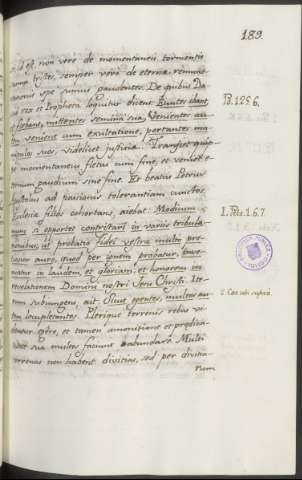 189.
id est non vere de momentaneis tormentis
sumus tristes, semper vero de eterna remune-
ratione spe sumus gaudentes. De quibus Da
rex et Propheta loquitur dicens Euntes ibant,
et flebant, mittentes semina sua. Venientes au-
tem venient cum exultatione, portantes ma-
nipulos suos, videlicet justitiæ. Transiet quip-
pe momentaneus fletus cum fine, et veniet e-
ternum gaudium sine fine. Et beatus Petrus
ad passionis tolerantiam cunctos
Ecclesiæ filios cohortans, aiebat Modicum
nunc si oportet contristari in variis tribula-
tionibus, ut probatio fidei vestræ multo pre-
tiosior auro, quod per ignem probatur, inve-
niatur in laudem, et gloriam, et honorem in
revelationem Domini nostri Jesu Christi. Ite-
rum subiungens, ait Sicut egentes, multos au-
tem locupletantes. Plerique terrenis rebus vi-
dentur egere, et tamen ammonitione et prædica-
tione sua multos faciunt abundare. Multi
terrenas non habent divitias, sed per divitia-
rum
Ps. 125 6.
1. Petr. 1. 6. 7
2. Cor. ubi supra.